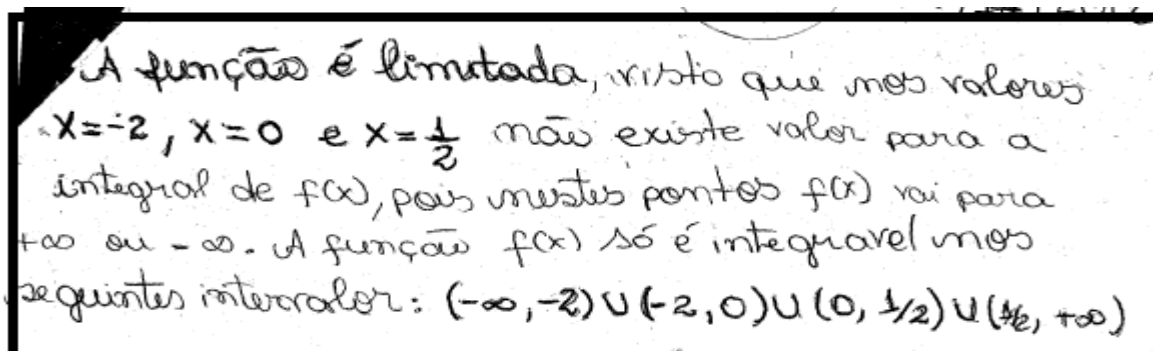 A função é limitada, visto que nos valores
x=-2, x=0 e x=1/2 não existe valor para a
integral de f(x), pois nestes pontos f(x) vai para
+∞ ou -∞. A função f(x) só é integravel nos
seguintes intervalor: (-∞,-2)∪(-2,0)∪(0,1/2)∪(1/2,+∞)